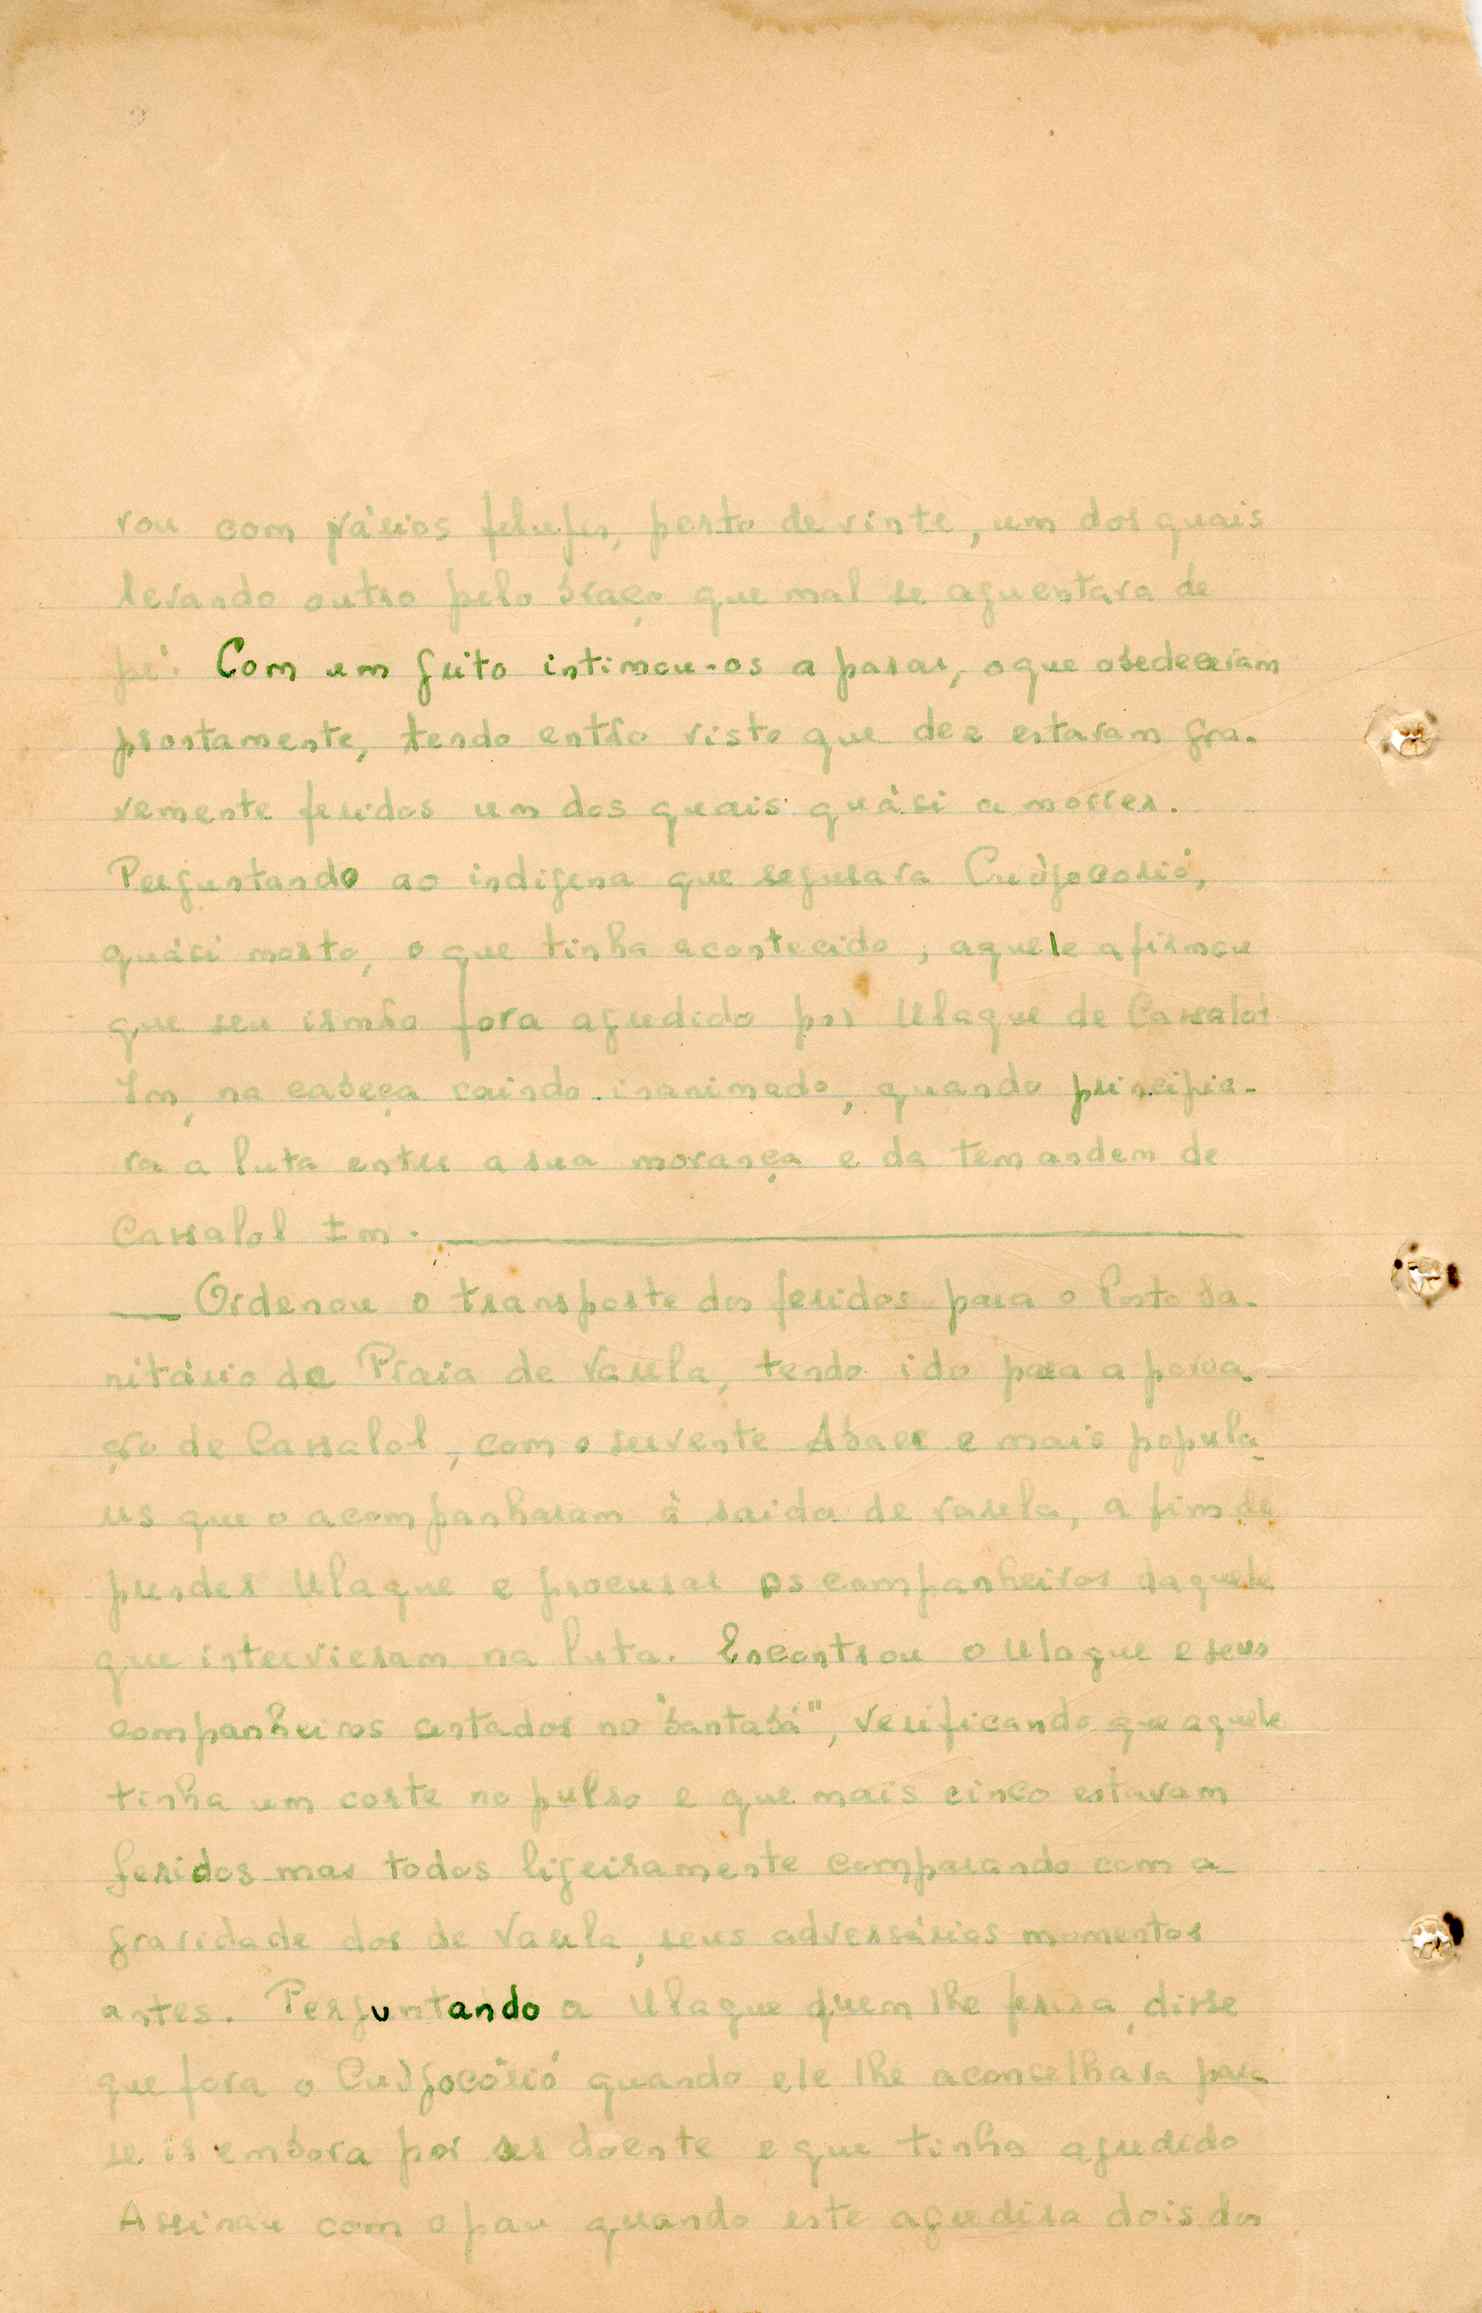 rou com vários felupes, perto de vinte, um dos quais
levando outro pelo braço que mal se aguentava de
pé. Com um grito intimou-os a parar, o que obedeceram
prontamente, tendo então visto que dez estavam gra-
vemente feridos um dos quais quási a morrer.
Perguntando ao indígena que segurava Cudjocorió,
quási morto, o que tinha acontecido, aquele afirmou
que seu irmão fora agredido por Ulaque de Cassalol
Im, na cabeça caindo inanimado, quando principia-
ra a luta entre a sua morança e da temandem de
Cassalol Im.
Ordenou o transporte dos feridos para o Posto Sa-
nitário de Praia de Varela, tendo ido para a povoa-
ção de Cassalol, com o servente Abaee e mais popula-
res que o acompanharam à saida de Varela, a fim de
prender Ulaque e procurar os companheiros daquele
que intervieram na luta. Encontrou o Ulaque e seus
companheiros sentados no "bantabá", verificando que aquele
tinha um corte no pulso e que mais cinco estavam
feridos mas todos ligeiramente comparando com a
gravidade dos de Varela, seus adversários momentos
antes. Perguntando a Ulaque quem lhe ferira, disse
que fora o Cudjocórió quando ele lhe aconselhara para
se ir embora por ser doente e que tinha agredido
Assinau com o pau quando este agredira dois dos